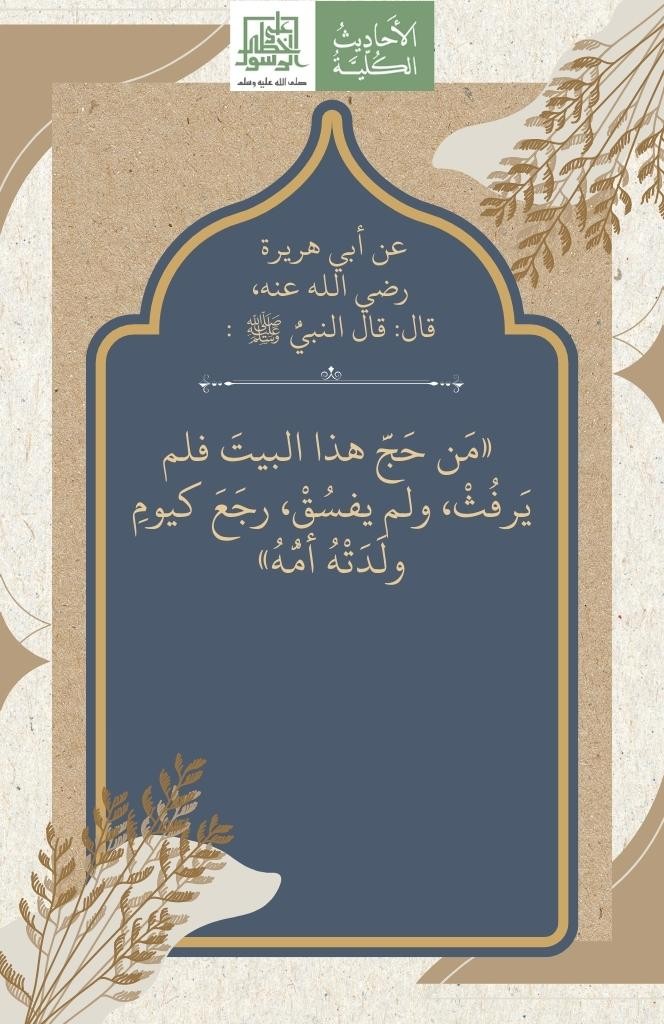 على
خطى
الرسول
صلى الله عليه وسلم
الأَحَادِيثُ
الكُلِّيَّةُ
عن أبي هريرة
رضي الله عنه،
قال: قال النبيُ ﷺ :
«مَن حَجّ هذا البيتَ فلم
يَرفُثْ، ولم يفسُقْ، رجَعَ كيومِ
ولَدَتْهُ أمُّهُ»